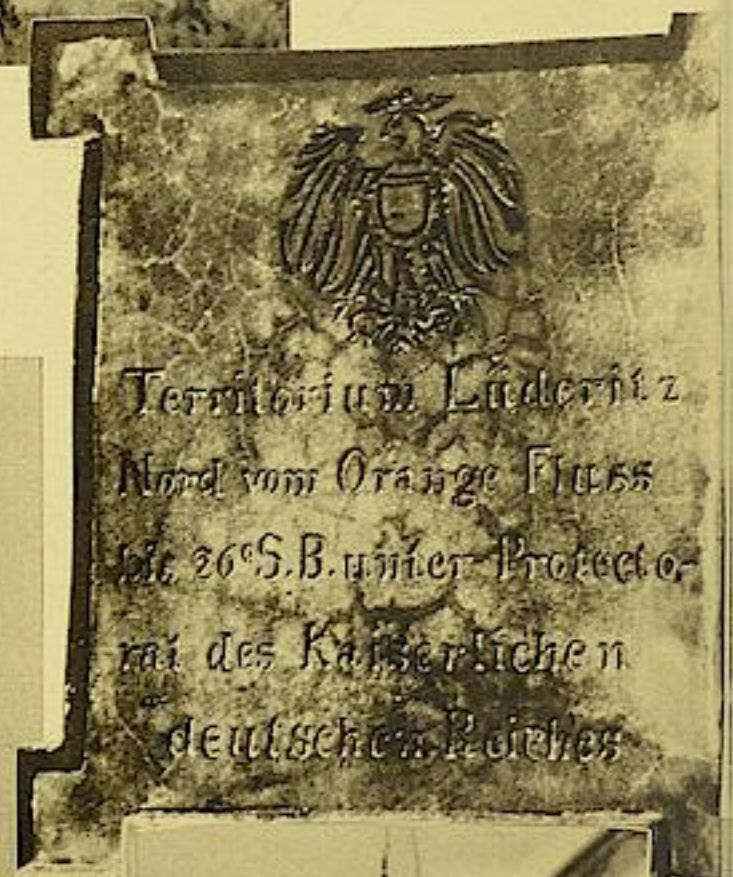 Territorium Lüderitz
Nord vom Orange Fluss
bis 26°S.B. unter Protecto-
rat des Kaiserlichen
deutschen Reiches